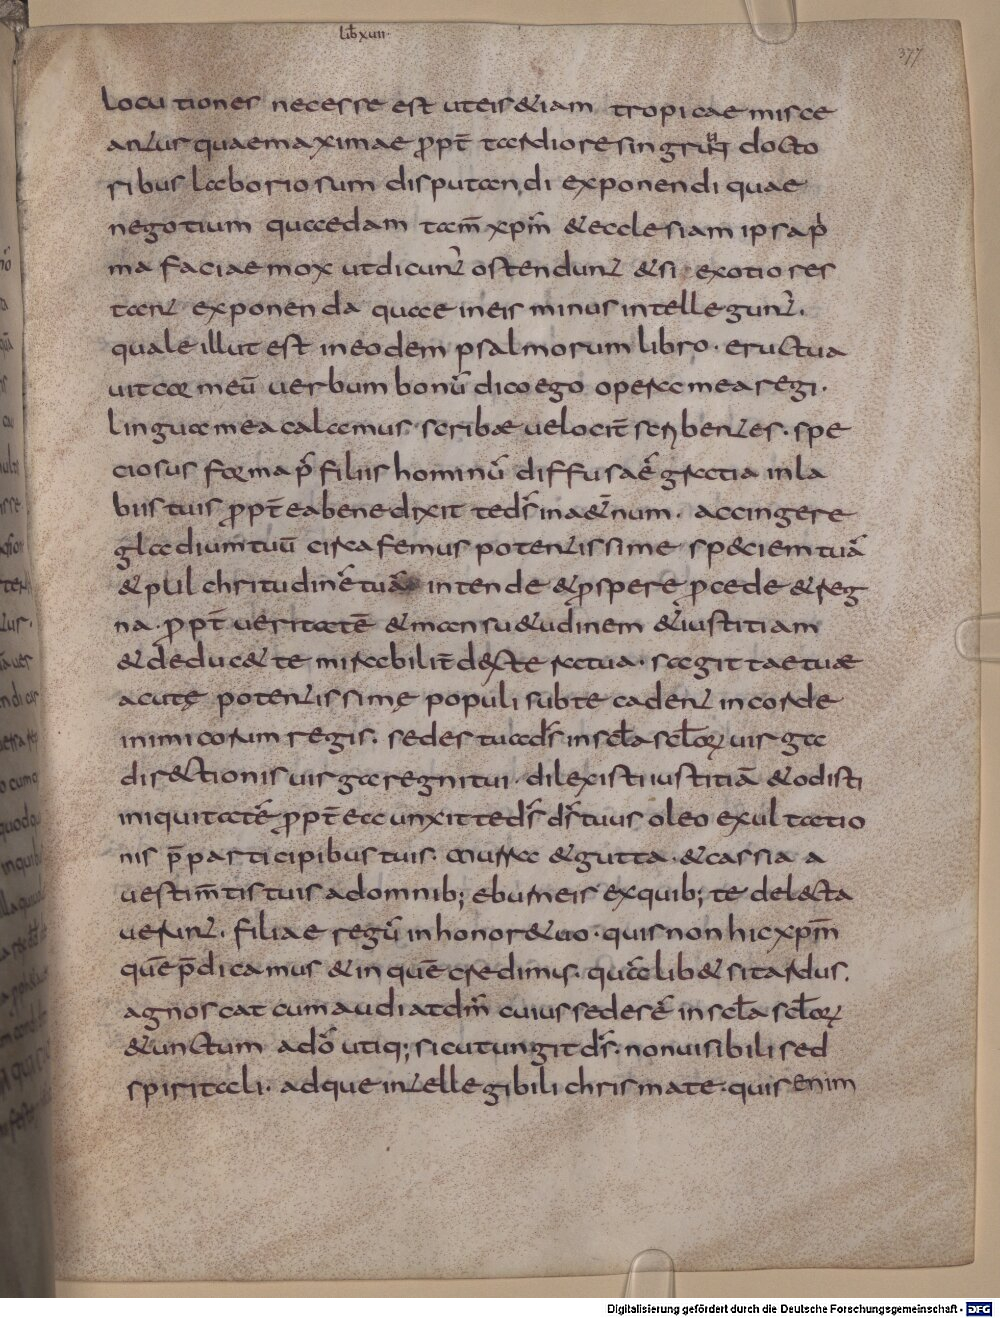 lib xvii·
377
Locutiones necesse est uteis &iam tropicae misce
antur quaemaximae ꝓpt̄ tardioresingruūt docto
ribus laboriosum disputandi exponendi quae
negotium quaedam tam̄ xpm̄ & ecclesiam ipsap̄
ma faciae mox utdicunt̄ ostendunt̄ & si exotiores
tant̄ exponenda quae ineis minus intellegunt̄.
quale illut est ineodem psalmorum libro· eructua
uit cor meū uerbum bonū dicoego opera mea regi·
lingua mea calamus· scribae uelocit̄ scribentes· spe
ciosus forma p̄ filiis hominū diffusaē gratia inla
biis tuis ꝓpt̄ ea benedixit te ds̄ inaet̄num· accingere
gladium tuū circa femus potentissime speciem tuā
& pulchritudinē tuā intende & ꝓspere ꝓcede & reg
na· ꝓpt̄ ueritatē & mansu&udinem & iustitiam
& deduc& te mirabilit̄ dextera tua· sagittae tuae
acutę potentissimę populi subte cadent incorde
inimicorum regis· sedes tua ds̄ in sc̄la sc̄loꝝ uirga
dir&ctionis uirga regni tui· dilexisti iustitiā & odisti
iniquitatē ꝓpt̄ ea unxit te ds̄ ds̄ tuus oleo exultatio
nis p̄ participibus tuis· murra & gutta· & cassia a
uestim̄tis tuis adomnib; eburneis exquib; te delecta
uerunt̄· filiae regū inhonor& uo· quis non hic xpm̄
quē p̄dicamus & in quē credimus· quālib& sitardus·
agnoscat cum audiat dm̄ cuius sedesē in sc̄la sc̄loꝝ
& unctum a dō utiq; sicut ungit ds̄· nonuisibili sed
spiritali· adque intellegibili chrismate· quis enim
Digitalisierung gefördert durch die Deutsche Forschungsgemeinschaft - DFG